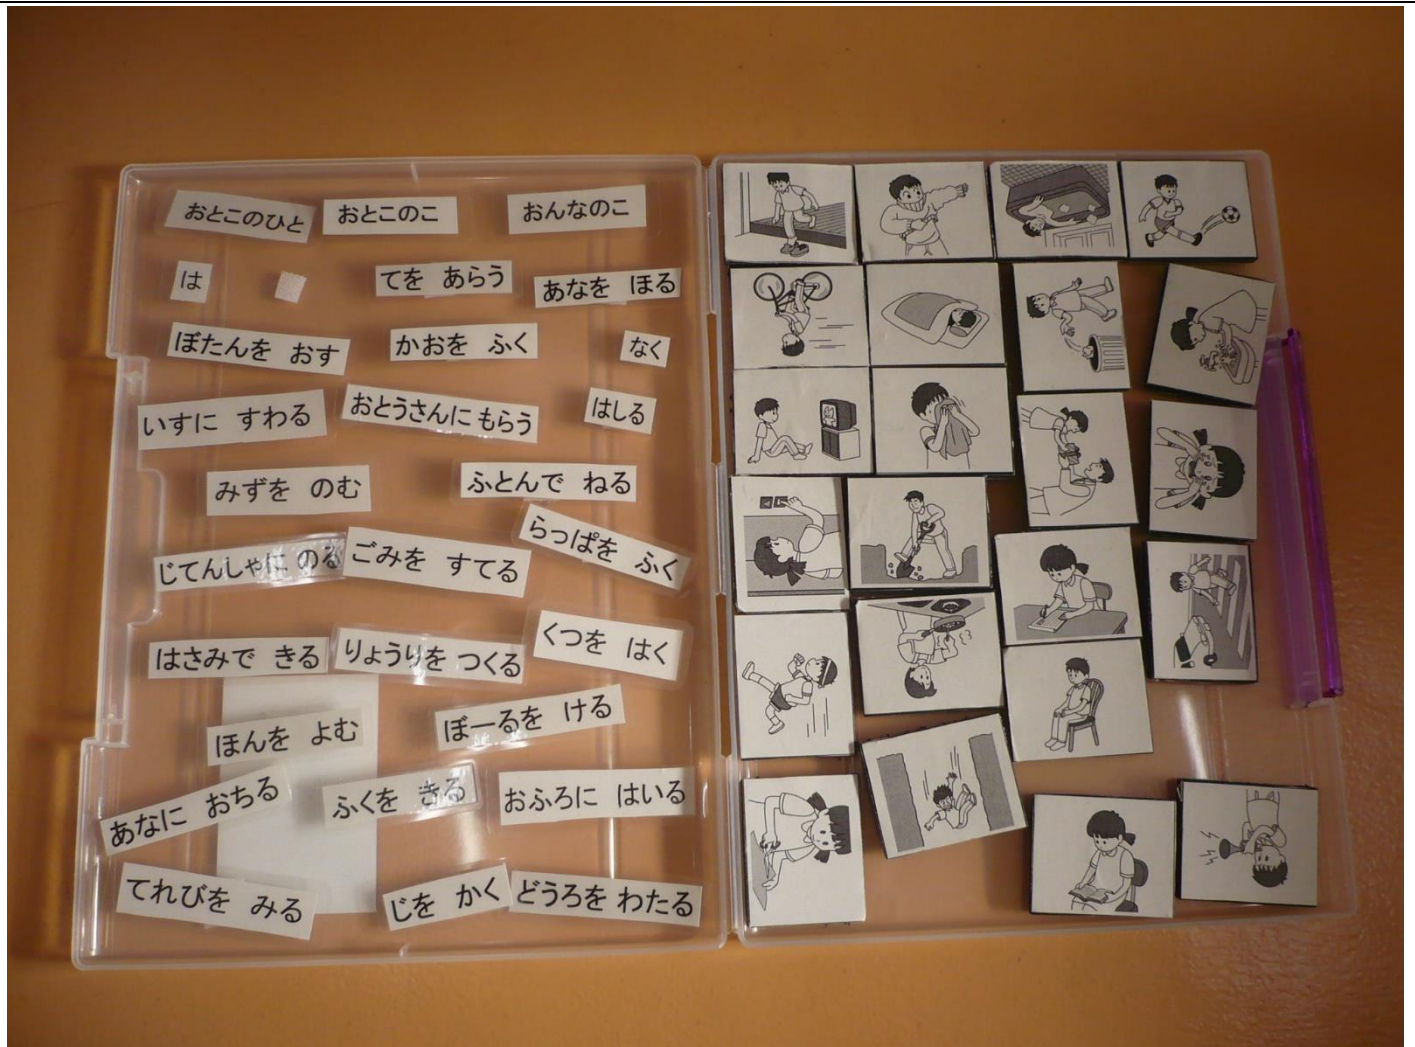 おとこのひと おとこのこ おんなのこ
は てを あらう あなを ほる
ぼたんを おす かおを ふく なく
いすに すわる おとうさんにもらう はしる
みずを のむ ふとんで ねる
じてんしゃに のる ごみを すてる らっぱを ふく
はさみで きる りょうりを つくる くつを はく
ほんを よむ ぼーるを ける
あなに おちる ふくを きる おふろに はいる
てれびを みる じを かく どうろを わたる